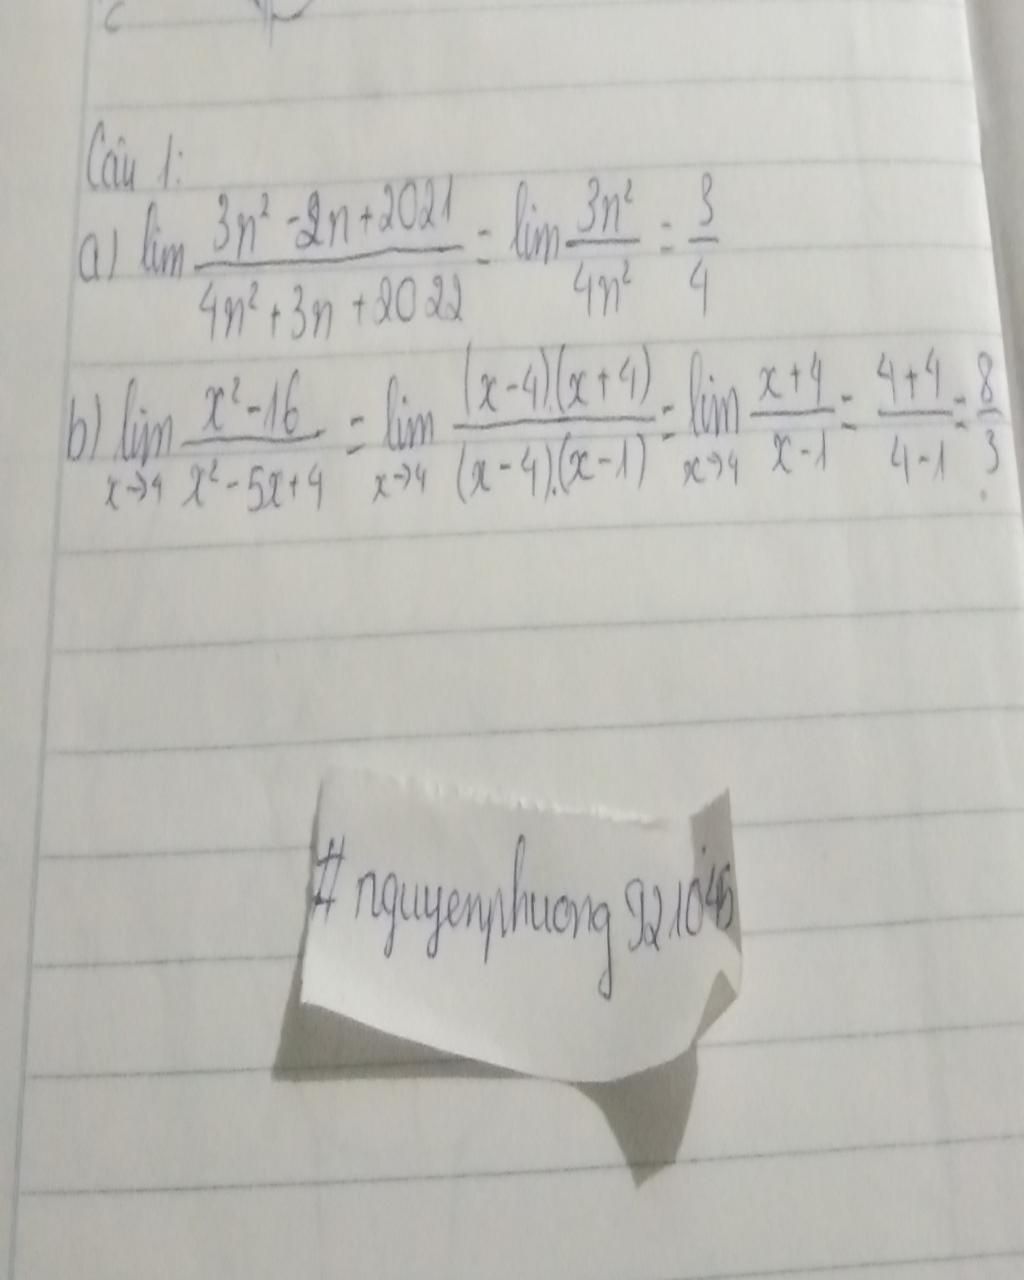 Câu 1:
a) lim (3n² - 2n + 2021)/(4n² + 3n + 2022) = lim 3n²/4n² = 3/4
b) lim x→4 (x² - 16)/(x² - 5x + 4) = lim x→4 (x - 4).(x + 4)/(x - 4).(x - 1) = lim x→4 (x + 4)/(x - 1) = (4 + 4)/(4 - 1) = 8/3
# nguyenphuong 921045